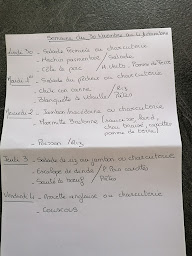 Semaine du 30 Novembre au 4 décembre
Lundi 30 - Salade Piémontaise ou charcuterie
- Hachis parmentier / Salade
- Côte de porc / Pomme de terre
Mardi 1er - Salade du pêcheur ou charcuterie
- Chili con carne / Riz
- Blanquette de volaille / Pâtes
Mercredi 2 - Jambon macédoine ou charcuterie
- Marmite Bretonne (saucisse, lard, chou, carottes, pomme de terre)
- Poisson / Riz
Jeudi 3 - Salade de riz au jambon ou charcuterie
- Escalope de dinde / P. Pois carottes
- Sauté de boeuf / Pâtes
Vendredi 4 - Carotte anglaise ou charcuterie
- Couscous